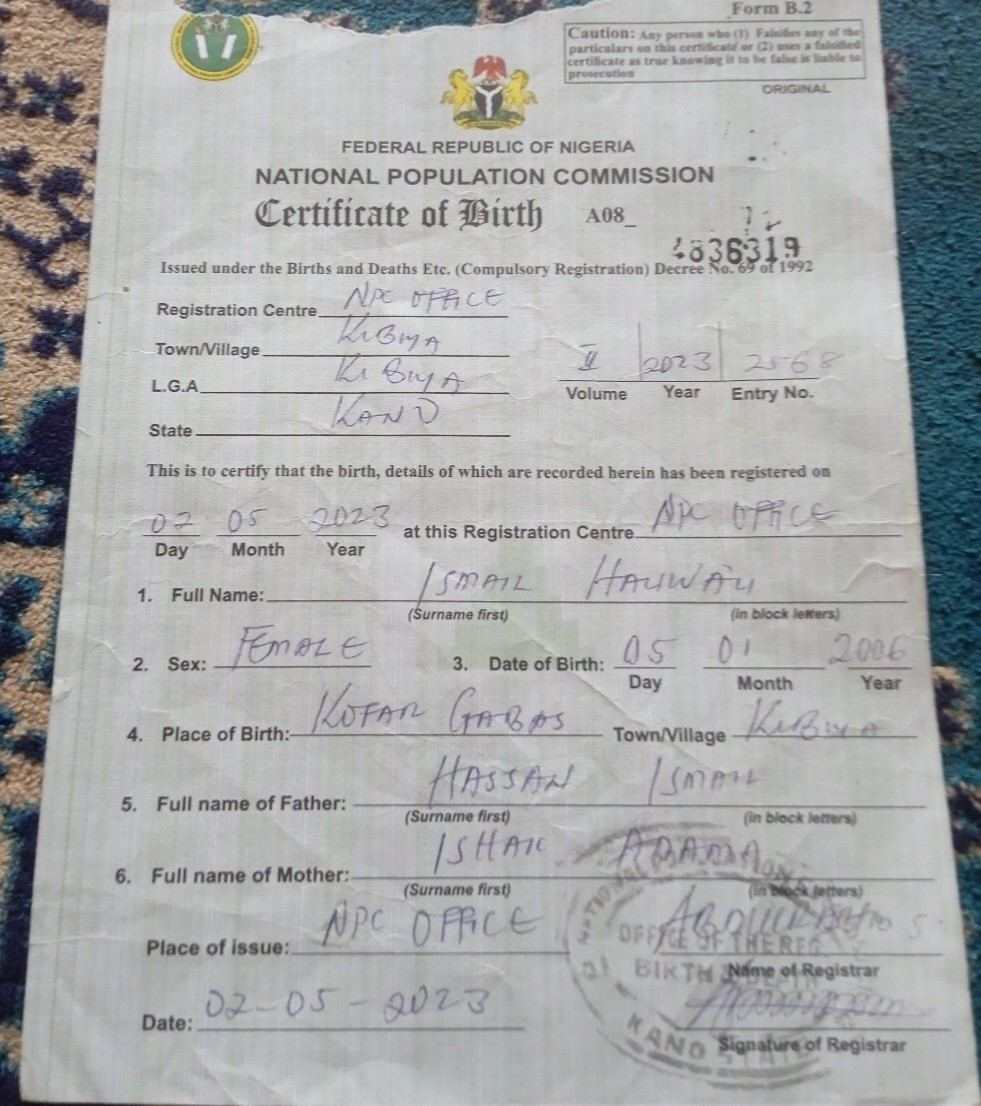 Form B.2
Caution: Any person who (1) Falsifies any of the
particulars on this certificate or (2) uses a falsified
certificate as true knowing it to be false is liable to
prosecution
ORIGINAL
FEDERAL REPUBLIC OF NIGERIA
NATIONAL POPULATION COMMISSION
Certificate of Birth A08_
4836319
Issued under the Births and Deaths Etc. (Compulsory Registration) Decree No. 69 of 1992
Registration Centre NPC OFFICE
Town/Village KIBIYA
L.G.A KIBIYA
State KANO
II 2023 2568
Volume Year Entry No.
This is to certify that the birth, details of which are recorded herein has been registered on
02 05 2023 at this Registration Centre NPC OFFICE
Day Month Year
1. Full Name: ISMAIL HAUWA'U
(Surname first) (in block letters)
2. Sex: FEMALE 3. Date of Birth: 05 01 2006
Day Month Year
4. Place of Birth: KOFAR GABAS Town/Village KIBIYA
5. Full name of Father: HASSAN ISMAIL
(Surname first) (in block letters)
6. Full name of Mother: ISHAK ADAMA
(Surname first) (in block letters)
Place of issue: NPC OFFICE
Name of Registrar
Date: 02-05-2023
Signature of Registrar
OFFICE OF THE REG
BIRTH
KANO STATE